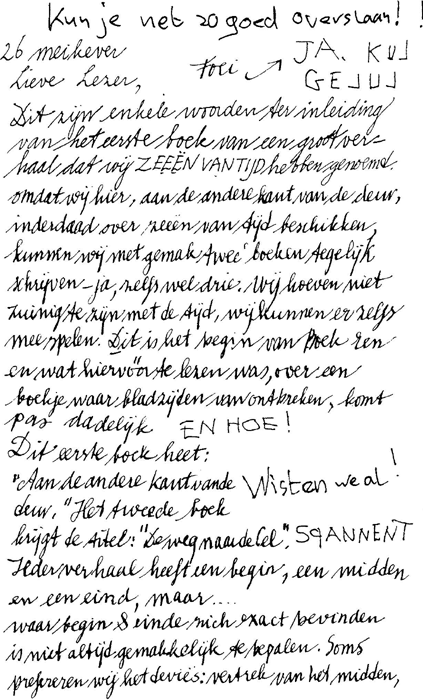 Kun je net zo goed overslaan! !
26 meikever
Foei
JA. KIJ
GEIJIJ
Lieve Lezer,
Dit zijn enkele woorden ter inleiding
van het eerste boek van een groot ver-
haal dat wij ZEEËN VAN TIJD hebben genoemd.
omdat wij hier, aan de andere kant van de deur,
inderdaad over zeeën van tijd beschikken,
kunnen wij met gemak twee boeken tegelijk
schrijven - ja, zelfs wel drie. Wij hoeven niet
zuinig te zijn met de tijd, wij kunnen er zelfs
mee spelen. Dit is het begin van Boek een
en wat hiervóór te lezen was, over een
boekje waar bladzijden van ontbreken, komt
pas dadelijk EN HOE!
Dit eerste boek heet:
"Aan de andere kant van de Wisten we al!
deur." Het tweede boek
krijgt de titel: "De weg naar de Cel". SPANNENT
Ieder verhaal heeft een begin, een midden
en een eind, maar....
waar begin & einde zich exact bevinden
is niet altijd gemakkelijk te bepalen. Soms
prefereren wij het devies: vertrek van het midden,